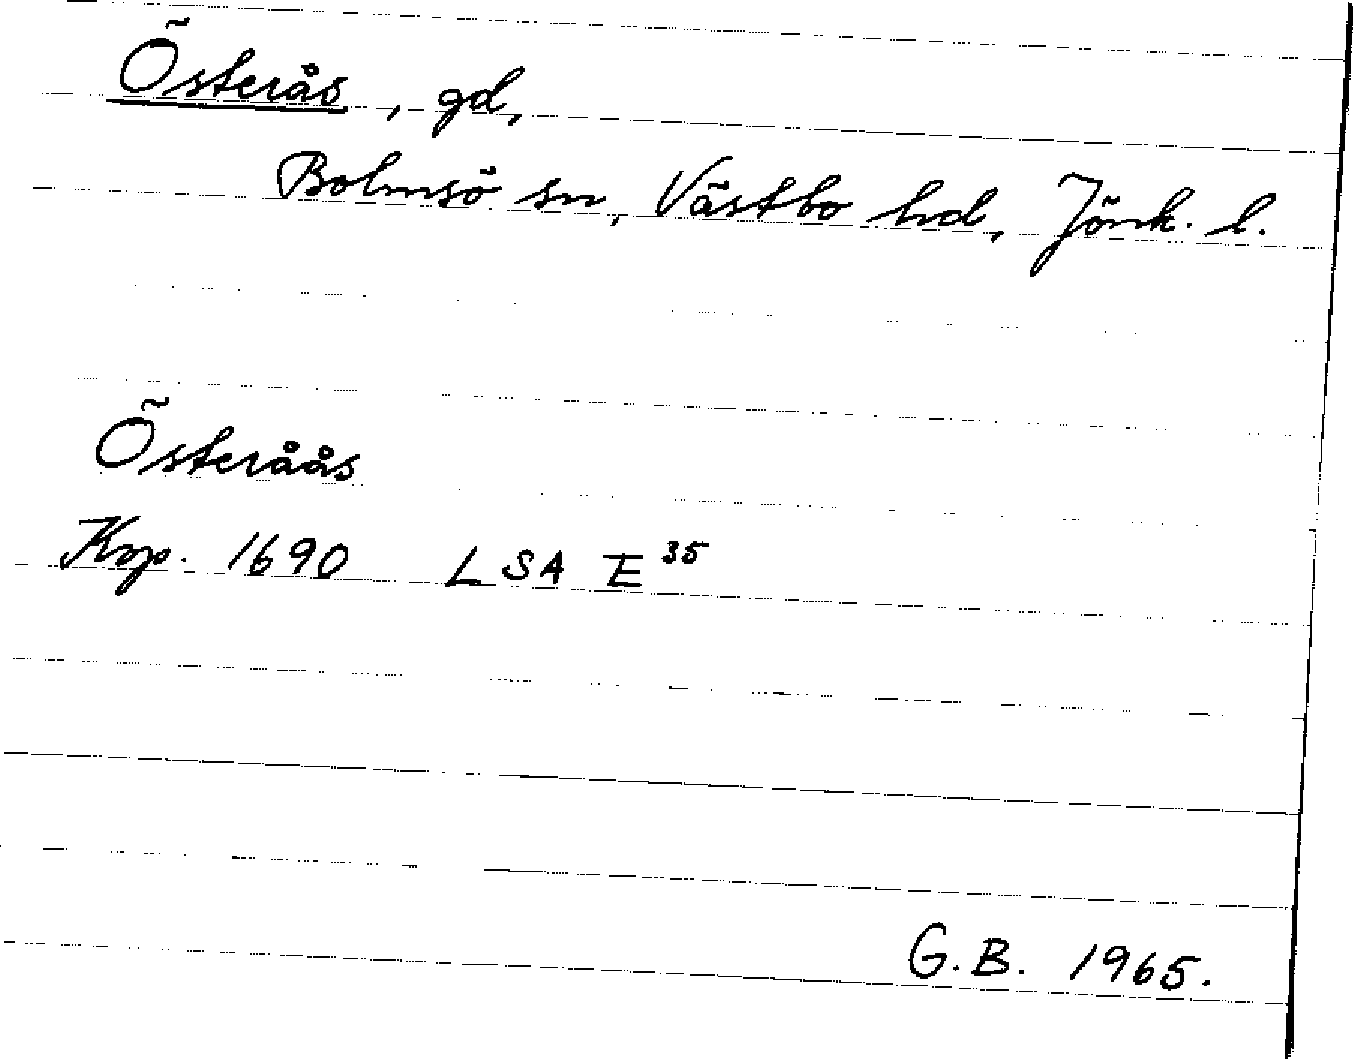 Österås, gd,
Bolmsö sn, Västbo hd, Jönk. l.
Österåås
Kop. 1690 LSA E 35
G.B. 1965.